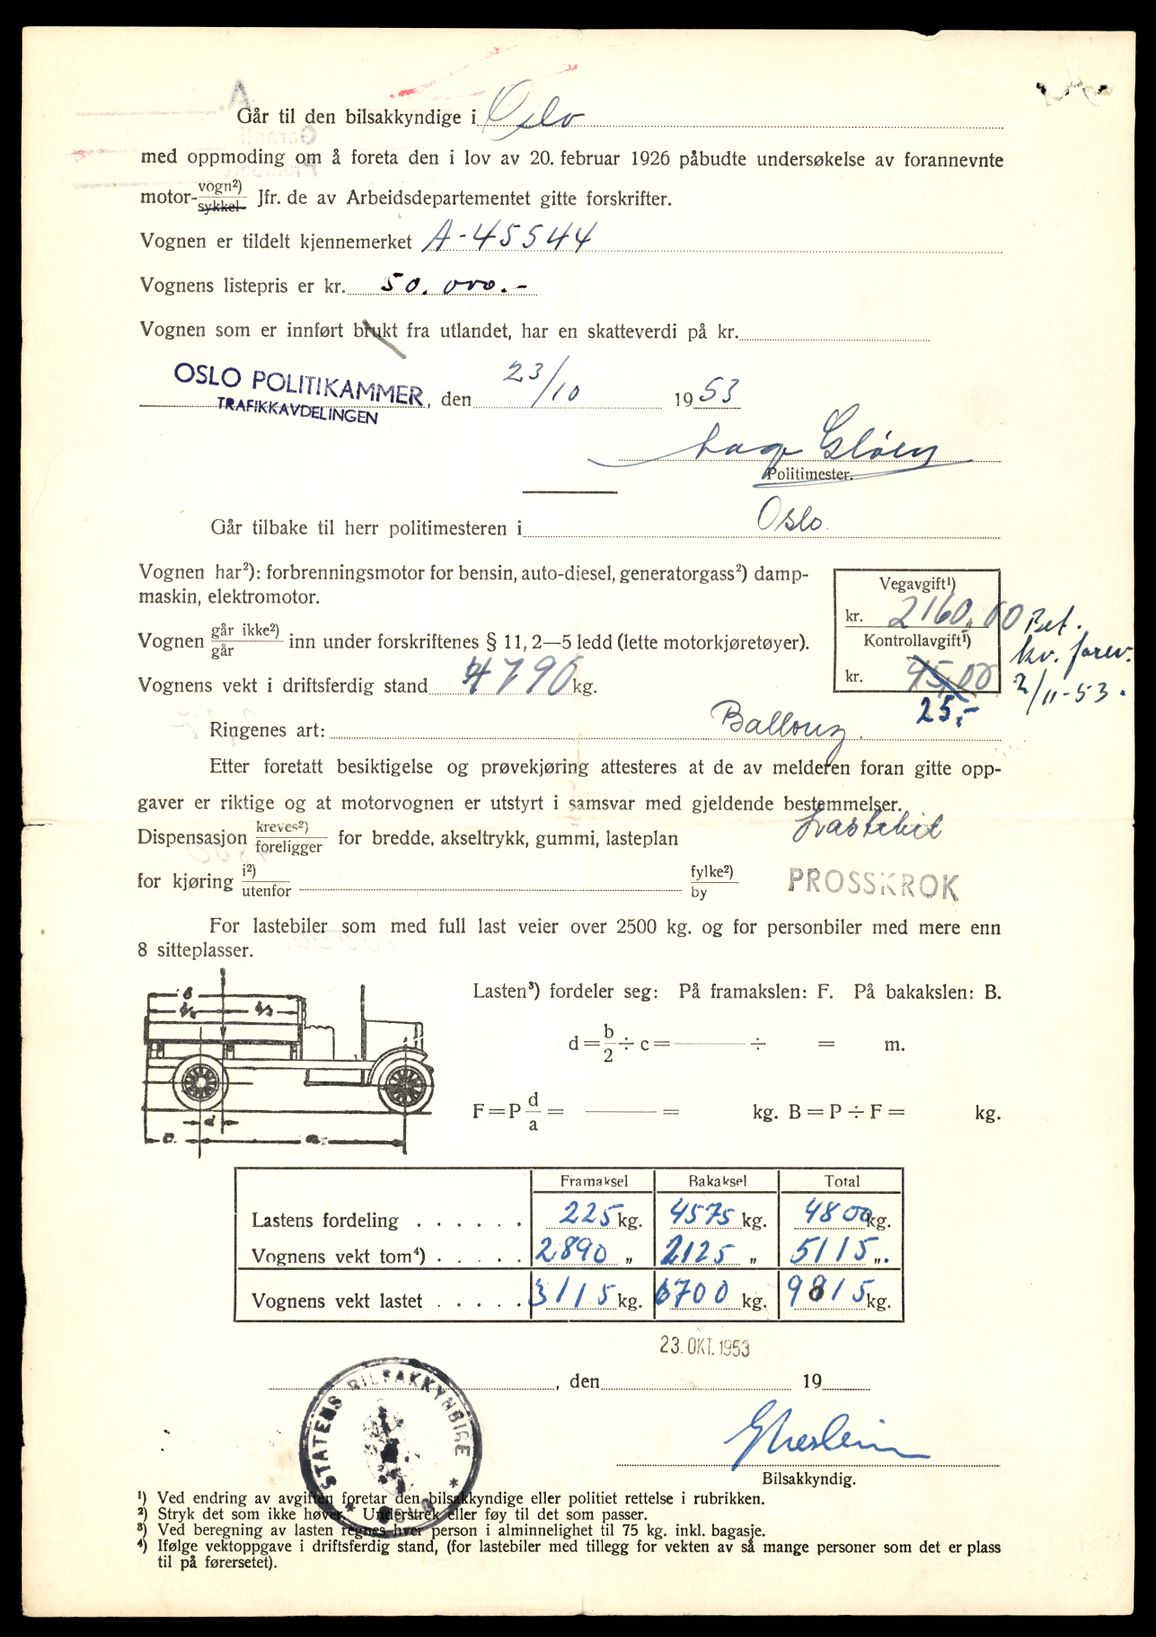 Går til den bilsakkyndige i Oslo
med oppmoding om å foreta den i lov av 20. februar 1926 påbudte undersøkelse av forannevnte
motor- vogn²) / sykkel Jfr. de av Arbeidsdepartementet gitte forskrifter.
Vognen er tildelt kjennemerket A-45544
Vognens listepris er kr. 50.000.-
Vognen som er innført brukt fra utlandet, har en skatteverdi på kr.
OSLO POLITIKAMMER
TRAFIKKAVDELINGEN
, den 23/10 1953
Politimester.
Går tilbake til herr politimesteren i Oslo.
Vognen har²): forbrenningsmotor for bensin, auto-diesel, generatorgass²) damp-
maskin, elektromotor.
Vegavgift¹)
kr. 2160.00 Bet.
Vognen går ikke²) / går inn under forskriftenes § 11, 2—5 ledd (lette motorkjøretøyer).
Kontrollavgift¹)
kv. forev.
kr. 45,00
2/11-53.
25,-
Vognens vekt i driftsferdig stand 4790 kg.
Ringenes art: Ballong.
Etter foretatt besiktigelse og prøvekjøring attesteres at de av melderen foran gitte opp-
gaver er riktige og at motorvognen er utstyrt i samsvar med gjeldende bestemmelser.
Dispensasjon kreves²) / foreligger for bredde, akseltrykk, gummi, lasteplan
Lastebil
for kjøring i²) / utenfor fylke²) / by
PROSSKROK
For lastebiler som med full last veier over 2500 kg. og for personbiler med mere enn
8 sitteplasser.
Lasten³) fordeler seg: På framakslen: F. På bakakslen: B.
d = b/2 ÷ c = ÷ = m.
F = P d/a = = kg. B = P ÷ F = kg.
Framaksel Bakaksel Total
Lastens fordeling . . . . . . 225 kg. 4575 kg. 4800 kg.
Vognens vekt tom⁴) . . . . . 2890 „ 2125 „ 5115 „.
Vognens vekt lastet . . . . . 3115 kg. 6700 kg. 9815 kg.
23. OKT. 1953
, den 19
STATENS BILSAKKYNDIGE * OSLO *
Bilsakkyndig.
¹) Ved endring av avgiften foretar den bilsakkyndige eller politiet rettelse i rubrikken.
²) Stryk det som ikke høver. Understrek eller føy til det som passer.
³) Ved beregning av lasten regnes hver person i alminnelighet til 75 kg. inkl. bagasje.
⁴) Ifølge vektoppgave i driftsferdig stand, (for lastebiler med tillegg for vekten av så mange personer som det er plass
til på førersetet).